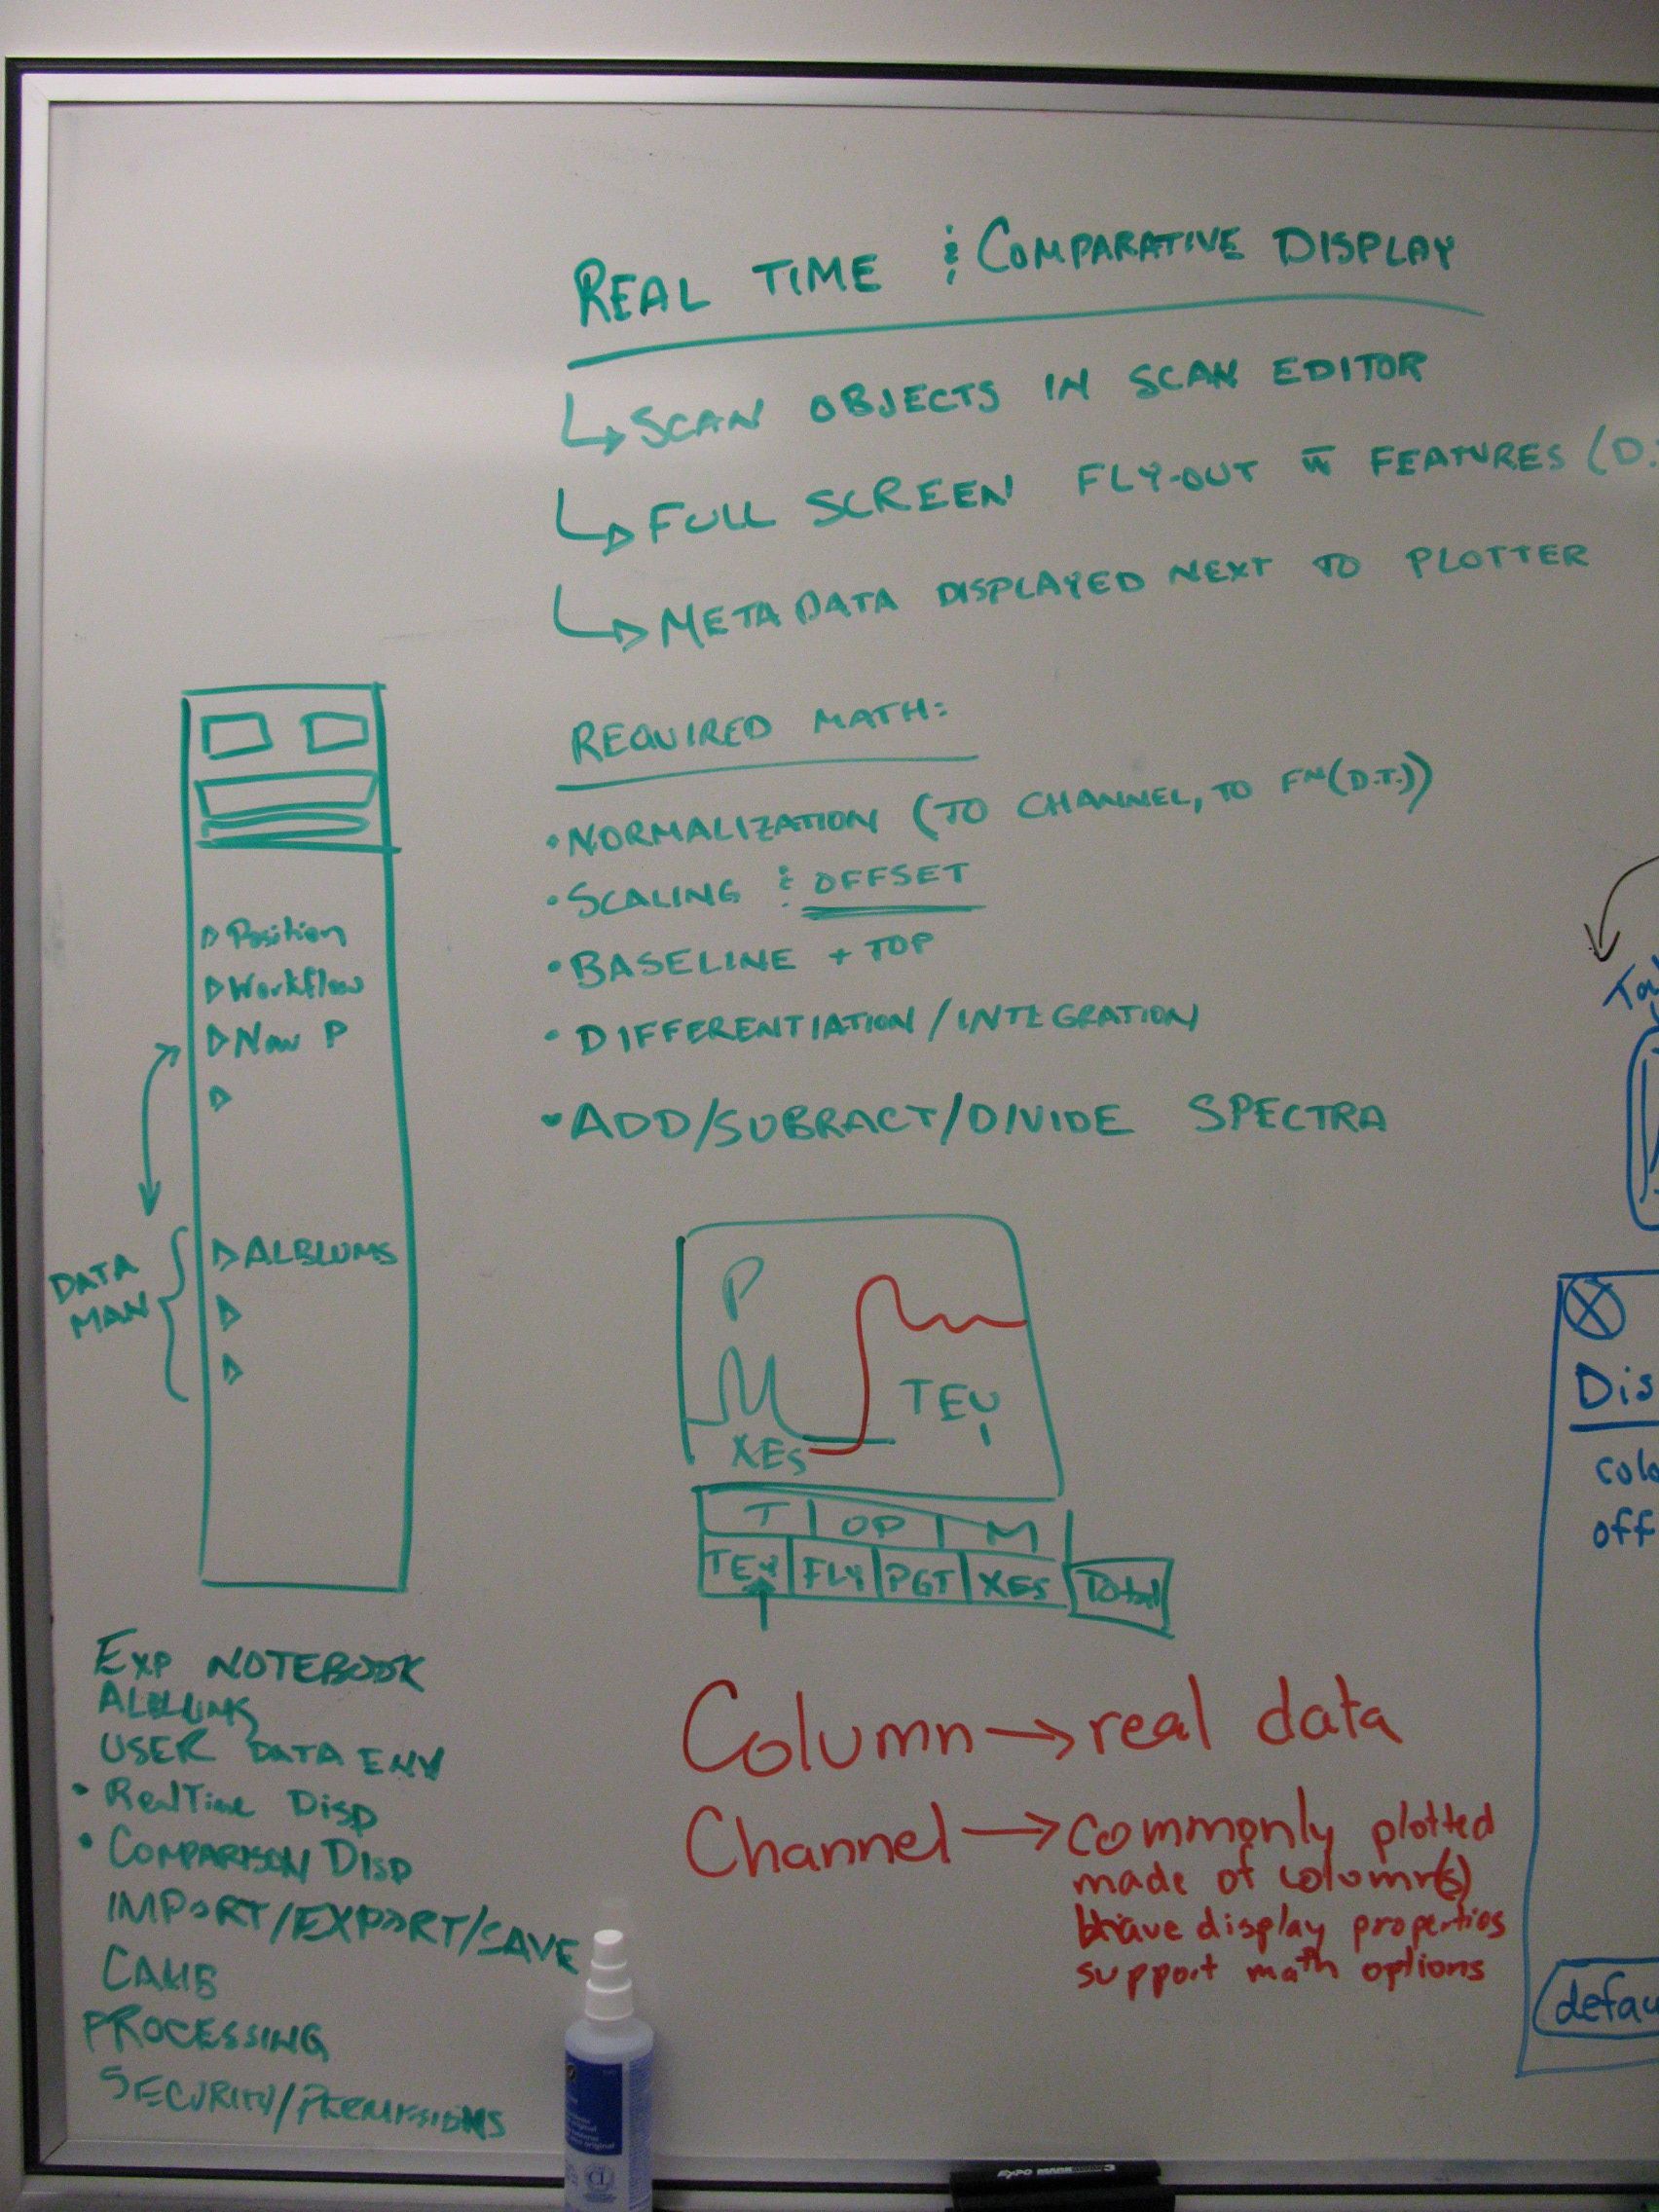 REAL TIME & COMPARATIVE DISPLAY
SCAN OBJECTS IN SCAN EDITOR
FULL SCREEN FLY-OUT w FEATURES (D.
META DATA DISPLAYED NEXT TO PLOTTER
REQUIRED MATH:
• NORMALIZATION (TO CHANNEL, TO FN(D.T.))
• SCALING & OFFSET
• BASELINE + TOP
• DIFFERENTIATION/INTEGRATION
• ADD/SUBRACT/DIVIDE SPECTRA
Position
Workflow
Now P
ALBLUMS
DATA
MAN
P
TEY
XES
T OP M
TEY FLY PGT XES
EXP NOTEBOOK
USER DATA ENV
• RealTime Disp
• COMPARISON DISP
IMPORT/EXPORT/SAVE
CALIB
PROCESSING
SECURITY/PERMISSIONS
Column → real data
Channel → commonly plotted
made of column(s)
have display properties
support math options
Dis
colo
off
defau
EXPO